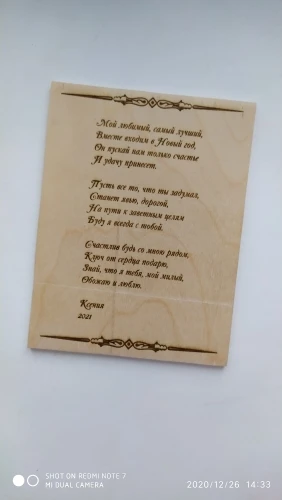 Мой любимый, самый лучший,
Вместе входим в Новый год,
Он пускай нам только счастье
И удачу принесет.
Пусть все то, что ты задумал,
Станет явью, дорогой,
На пути к заветным целям
Буду я всегда с тобой.
Счастлив будь со мною рядом,
Ключ от сердца подарю,
Знай, что я тебя, мой милый,
Обожаю и люблю.
Ксения
2021
SHOT ON REDMI NOTE 7
MI DUAL CAMERA
2020/12/26 14:33